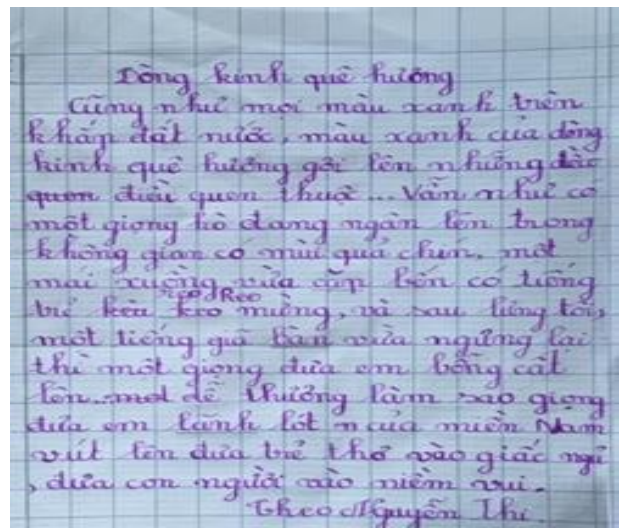 Dòng kinh quê hướng
Cũng như mọi màu xanh trên
khắp đất nước, màu xanh của dòng
kinh quê hướng gới lên những đều
quen điều quen thuộc... Vẫn như có
một giọng hò đang ngân lên trong
không gian có mùi quả chín, một
mái xuồng vừa cập bến có tiếng
trẻ reo Reo mừng, và sau lưng tôi,
một tiếng giã bàn vừa ngừng lại
thì một giọng đưa em bỗng cất
lên. mot dễ thướng làm sao giọng
đưa em lảnh lót của miền Nam
vút lên đưa trẻ thơ vào giấc ngủ
, đưa con người vào niềm vui.
Theo Nguyễn Thi